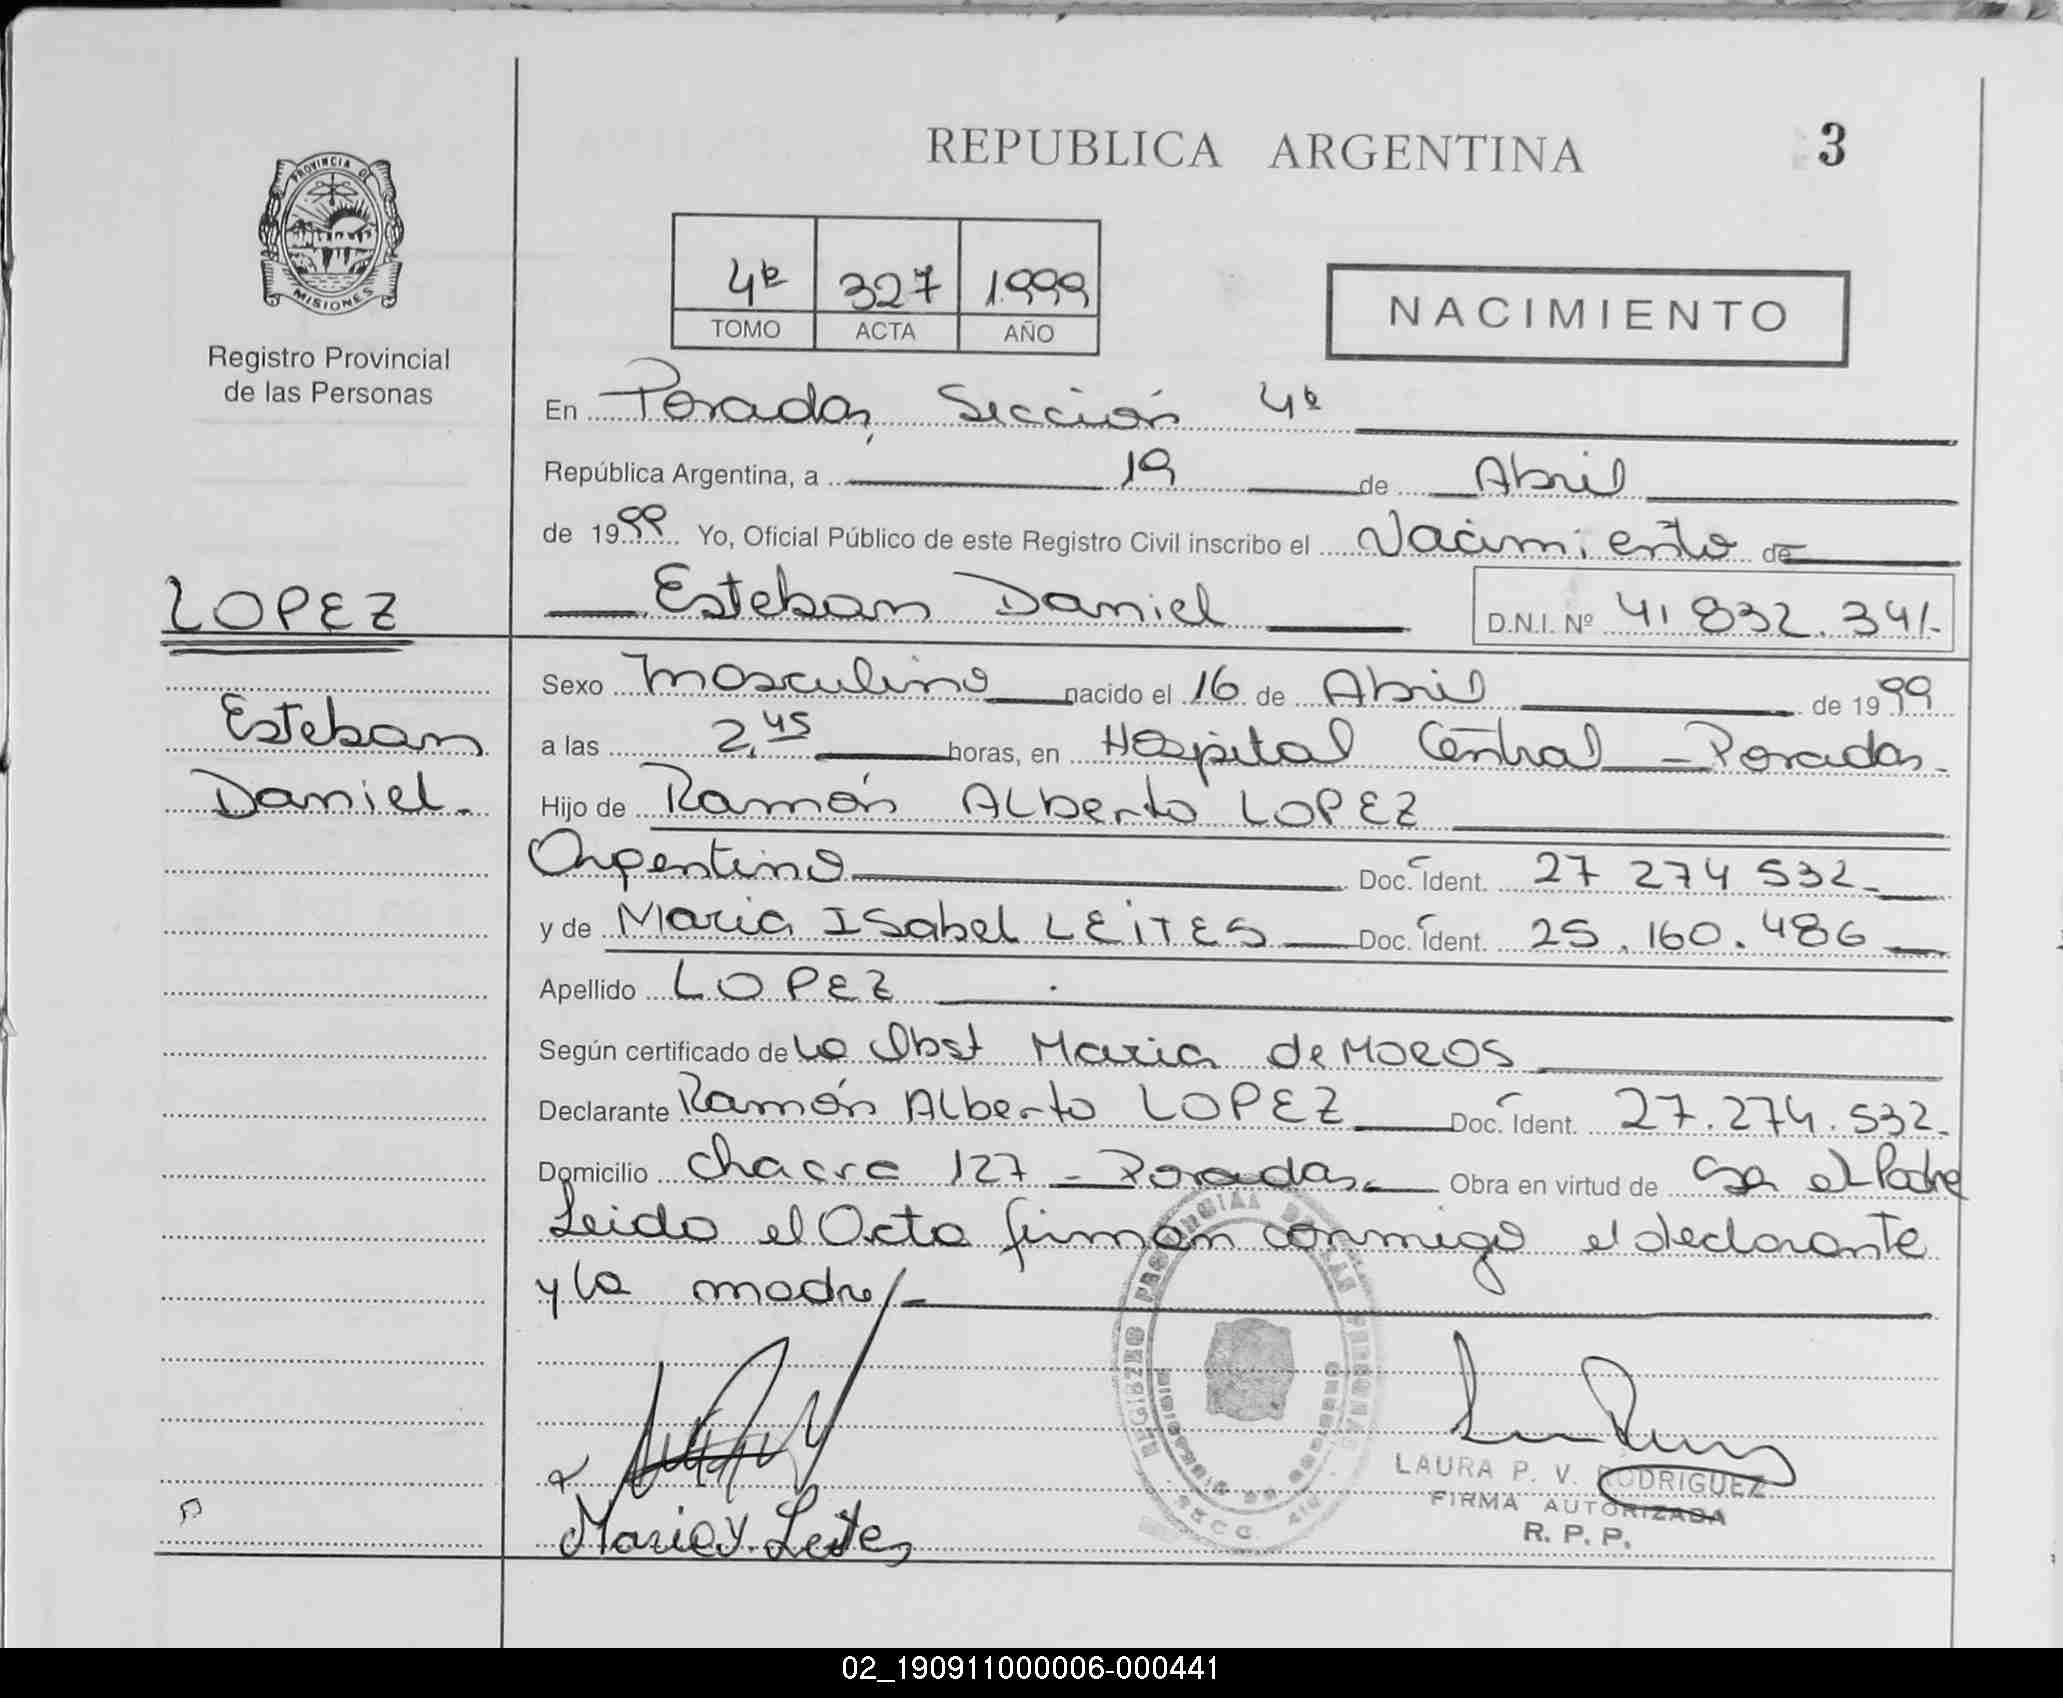 REPUBLICA ARGENTINA
3
PROVINCIA DE
MISIONES
Registro Provincial
de las Personas
4ª 327 1999
TOMO ACTA AÑO
NACIMIENTO
En Posadas, Sección 4ª
República Argentina, a 19 de Abril
de 1999 Yo, Oficial Público de este Registro Civil inscribo el Nacimiento de
LOPEZ
Esteban Daniel D.N.I. Nº 41 832.341-
Esteban
Daniel.
Sexo Masculino nacido el 16 de Abril de 1999
a las 2,45 horas, en Hospital Central - Posadas.
Hijo de Ramón Alberto LOPEZ
Argentino Doc. Ident. 27 274 532-
y de Maria Isabel LEITES Doc. Ident. 25.160.486
Apellido LOPEZ
Según certificado de la Obst Maria de MOROS
Declarante Ramón Alberto LOPEZ Doc. Ident. 27.274.532-
Domicilio chacra 127 - Posadas Obra en virtud de el Padre
Leido el Acta firman conmigo el declarante
y la madre/-
Maria Y. Leites
REGISTRO PROVINCIAL DE LAS PERSONAS
LAURA P. V. RODRIGUEZ
FIRMA AUTORIZADA
R. P. P.
02_190911000006-000441